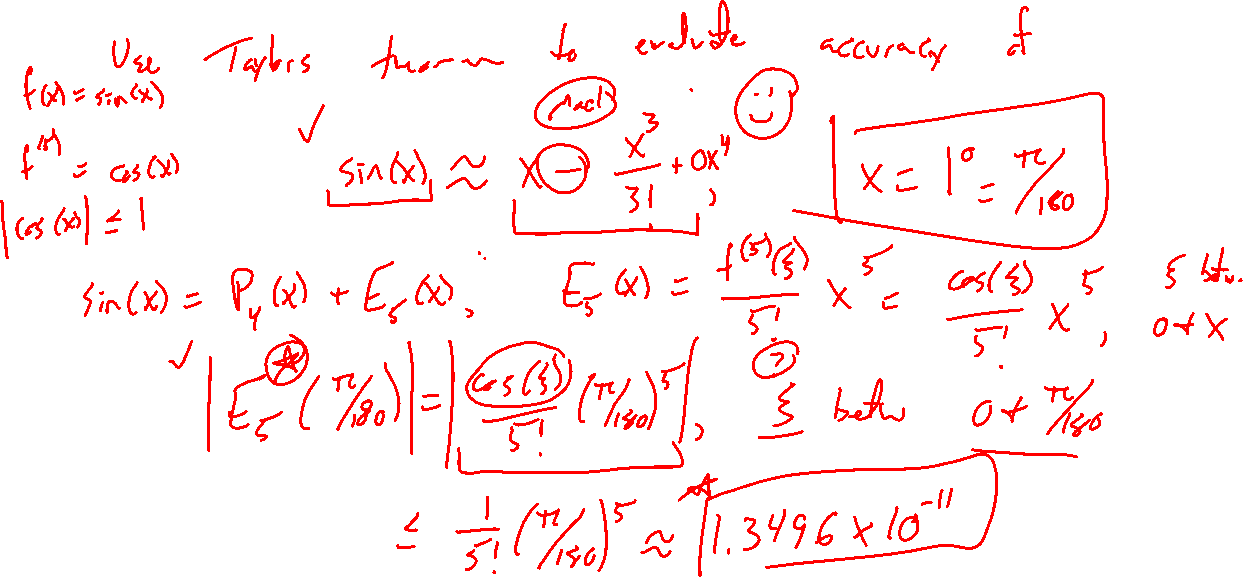 Use Taylors theorem to evaluate accuracy of
f(x) = sin(x)
✓ sin(x) ≈ x - x^3/3! + 0x^4, x = 1° = π/180
f^(5) = cos(x)
|cos(x)| ≤ 1
sin(x) = P_4(x) + E_5(x), E_5(x) = f^(5)(ξ)/5! x^5 = cos(ξ)/5! x^5, ξ betw. 0 + x
✓ |E_5(π/180)| = |cos(ξ)/5! (π/180)^5|, ξ betw 0 + π/180
≤ 1/5! (π/180)^5 ≈ 1.3496 x 10^-11